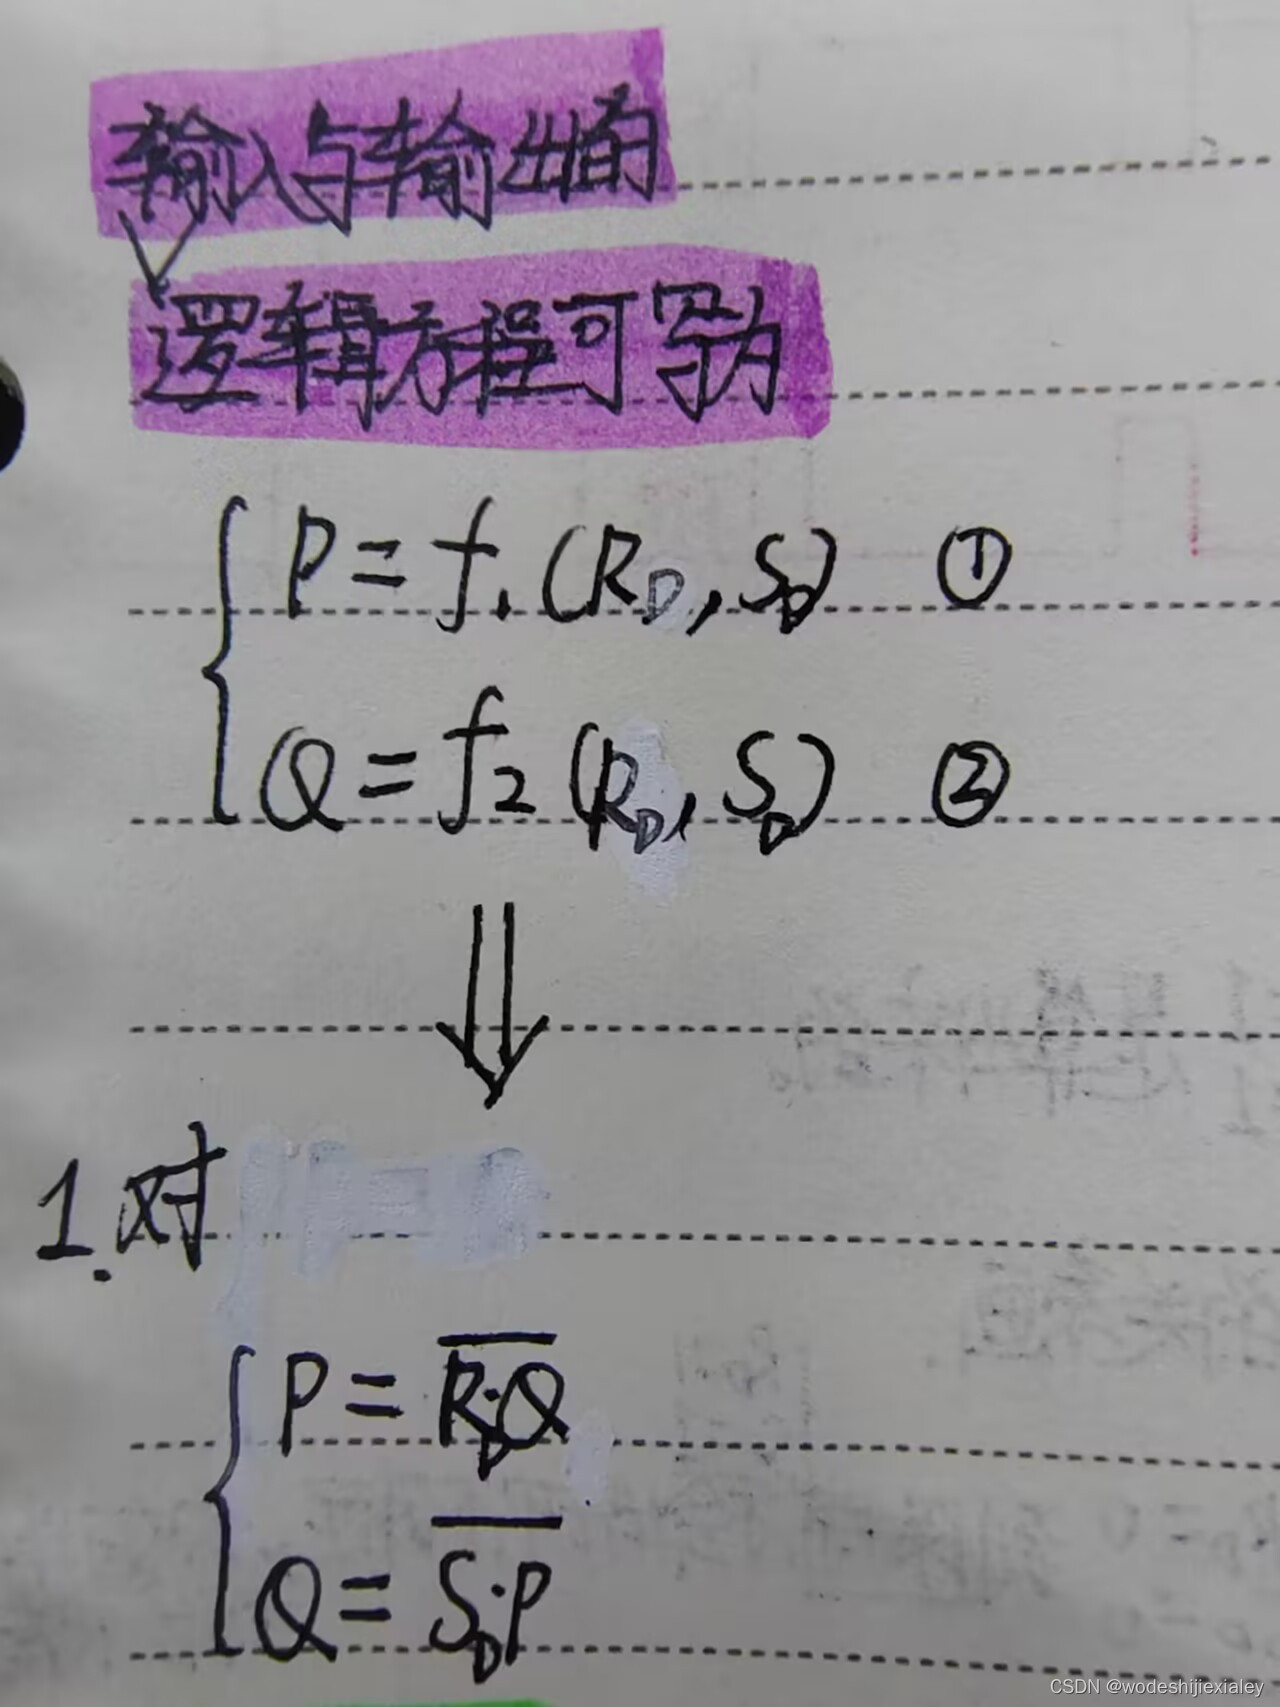 输入与输出的
逻辑方程可写为
P = f₁(R_D, S_D) ①
Q = f₂(R_D, S_D) ②
⇓
1. 对
P = \overline{R_D·Q}
Q = \overline{S_D·P}
CSDN @wodeshijiexialey